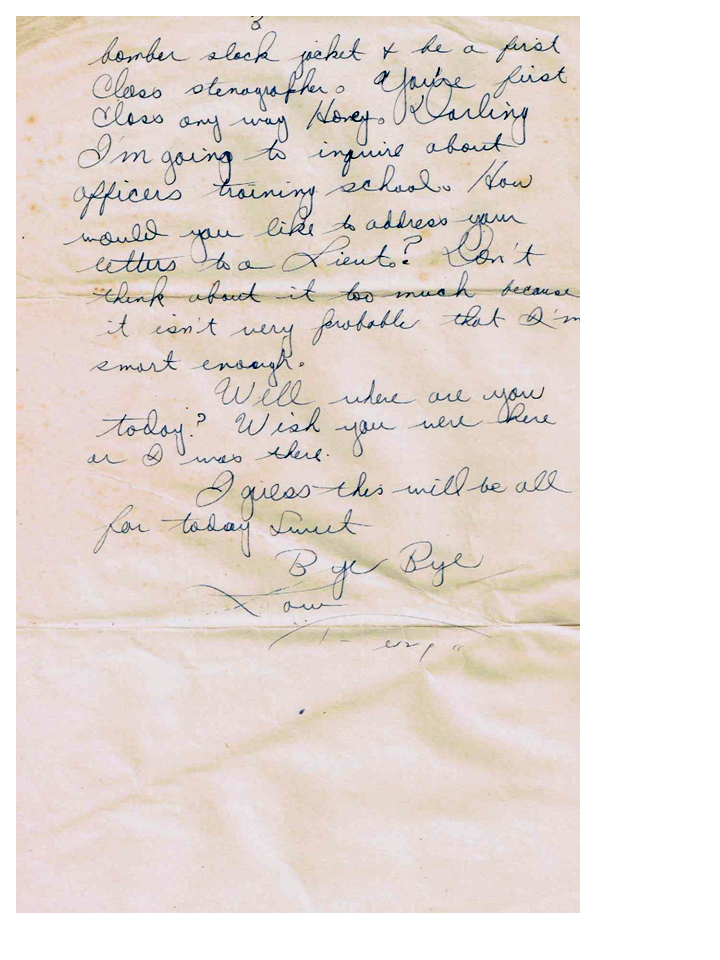 3
bomber slack jacket & be a first
Class stenographer. You're first
Class any way Honey. Darling
I'm going to inquire about
officers training school. How
would you like to address your
letters to a Lieut.? Don't
think about it too much because
it isn't very probable that I'm
smart enough.
Well where are you
today? Wish you were here
or I was there.
I guess this will be all
for today Sweet
Bye Bye